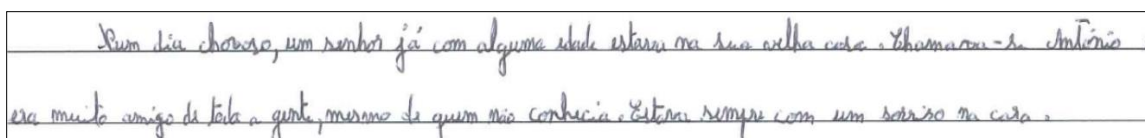 Num dia chovoso, um senhor já com alguma idade estava na sua velha casa. Chamava-se António
era muito amigo de toda a gente, mesmo de quem não conhecia. Estava sempre com um sorriso na cara.